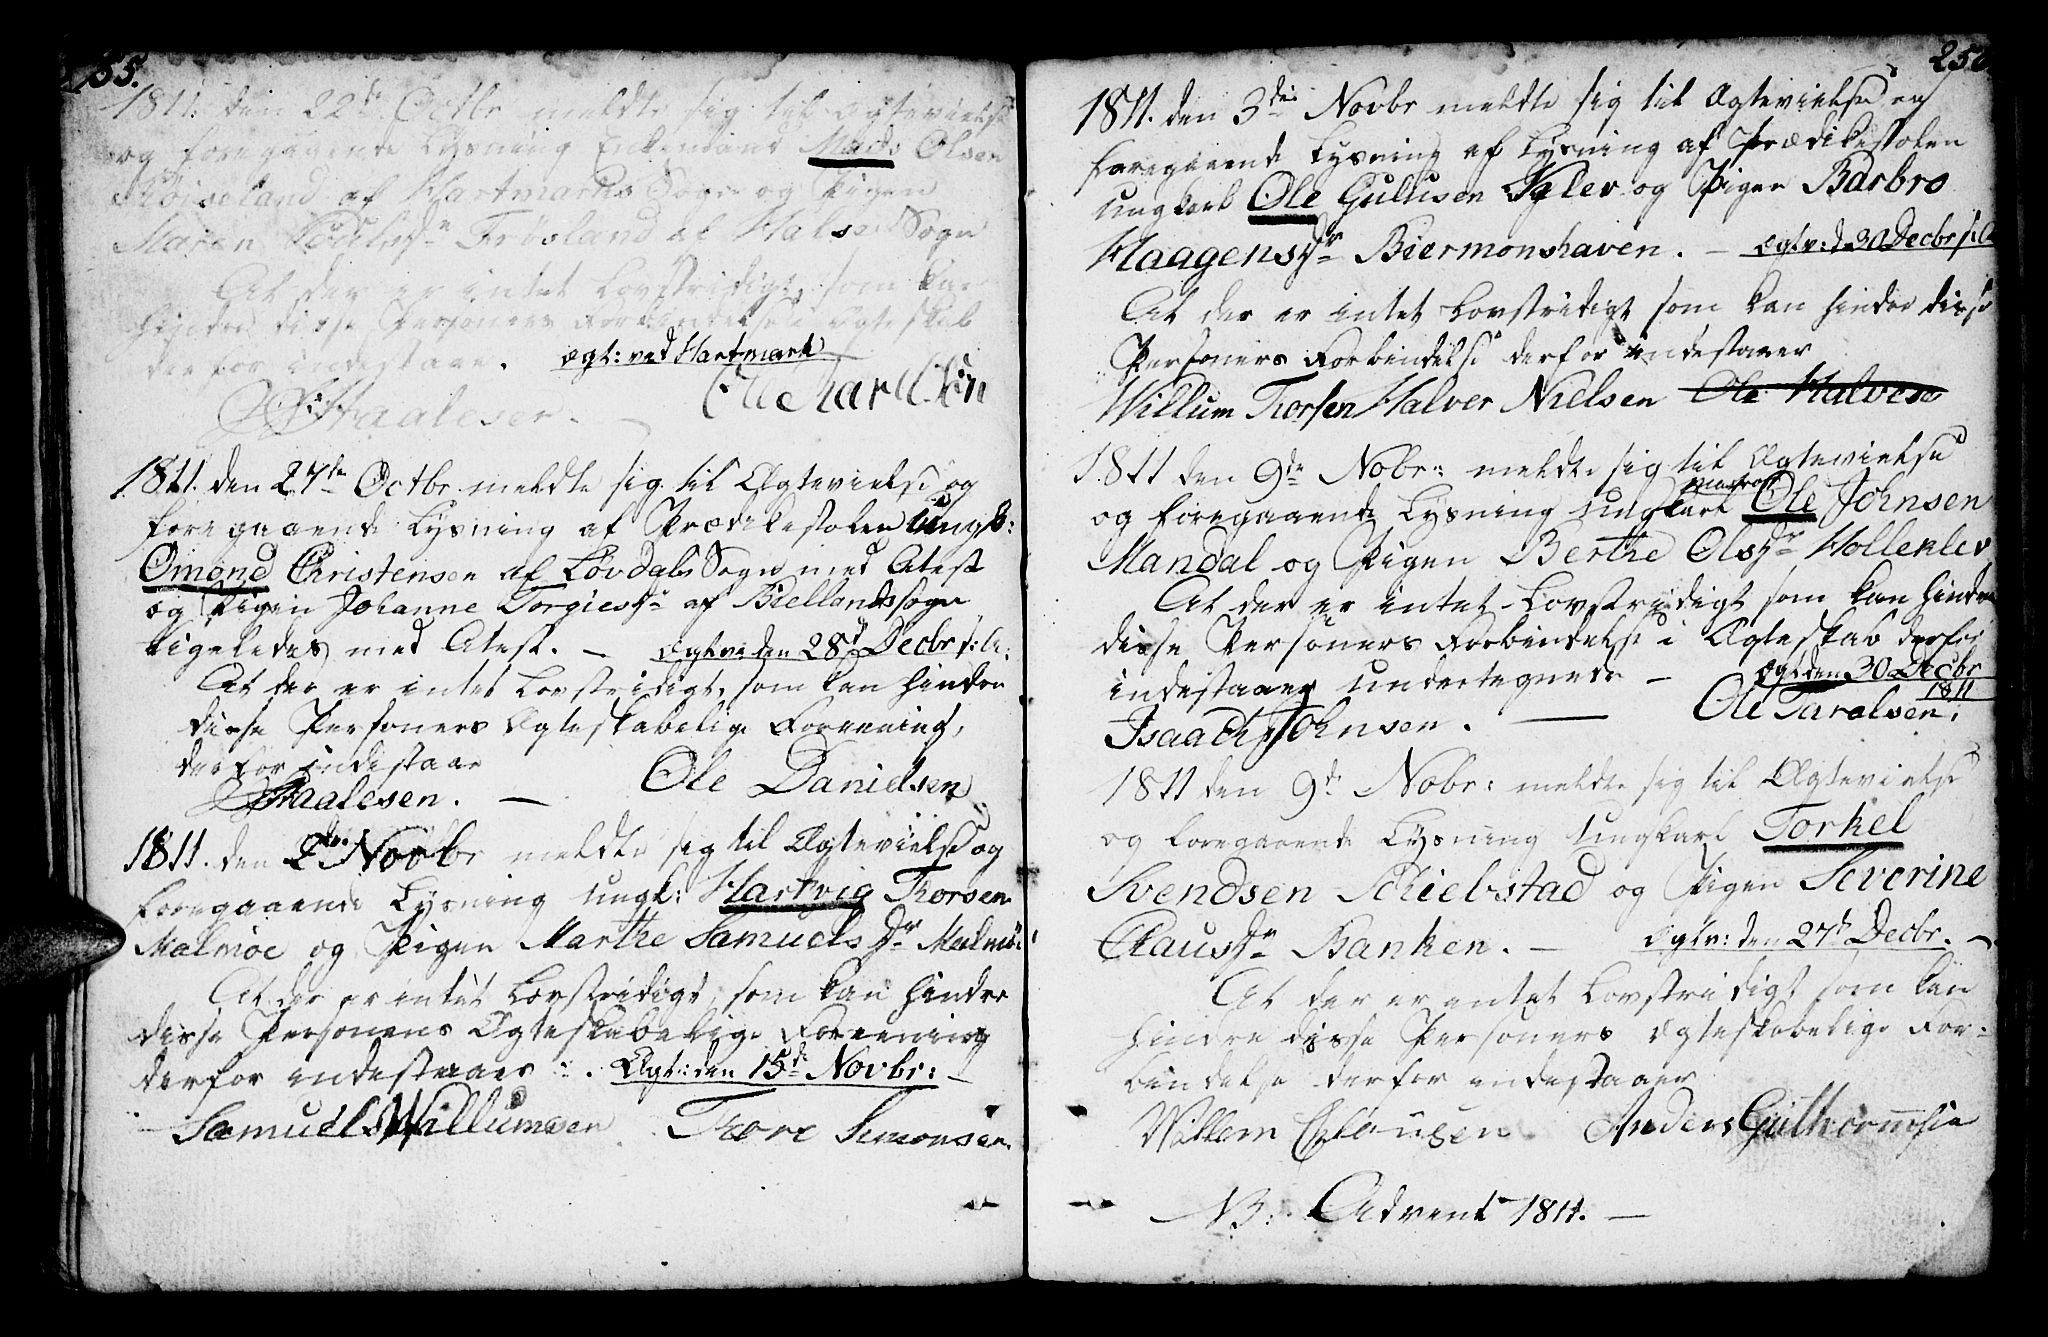 255.
1811. den 22de Octbr meldte sig til Ægtevielse
og foregaaende Lysning Enkemand Mads Olsen
Røiseland af Hartmarks Sogn og Pigen
Maren Povlsdr Frøsland af Halse Sogn
At der er intet Lovstridigt, som kan
hindre disse Personers Forbindelse i Ægteskab
derfor indestaaer. Ægt: ved Hartmark
Staalesen.
1811. den 27de Octbr meldte sig til Ægtevielse og
foregaaende Lysning af Prædikestolen Ungk:
Omond Christensen af Løvdals Sogn med Atest
og Pigen Johanne Torgiesdr af Biellands sogn
ligeledes med Atest. – Ægtv: den 28de Decbr s: A:
At der er intet Lovstridigt, som kan hindre
disse Personers Ægteskabelige Foreening,
derfor indestaar
Staalesen. – Ole Danielsen
1811. den 2den Novbr meldte sig til Ægtevielse og
foregaaende Lysning ungk: Hartvig Thorsen
Malmøe og Pigen Marthe Samuels Dr Malmøe
At der er intet Lovstridigt, som kan hindre
disse Personers Ægteskabelige Foreening
derfor indestaaer. Ægt: den 15de Novbr: –
Samuel Willumsen Thore Simonsen.
256
1811. den 3die Novbr meldte sig til Ægtevielse og
foregaaende Lysning af Lysning af Prædikestolen
ungkarl Ole Gulusen Klev og Pigen Barbro
Haagensdr Biermonshaven. – Ægtv: d 30 Decbr s: A
At der er intet Lovstridigt som kan hindre disse
Personers Forbindelse derfor indestaaer
Willum Thorsen Halver Nielsen Ole Halvors
1811 den 9de Nobr: meldte sig til Ægtevielse
og foregaaende Lysning ungkarl Matros Ole Johnsen
Mandal og Pigen Berthe Olsdr Holleklev
At der er intet Lovstridigt som kan hindre
disse Personers Forbindelse i Ægteskab derfor
indestaaer undertegnede – Ægt den 30 Decbr
1811
Isaach Johnsen. – Ole Taralsen.
1811 den 9de Nobr: meldte sig til Ægtevielse
og foregaaende Lysning Ungkarl Torkel
Svendsen Schiebstad og Pigen Severine
Clausdr Banken. – Ægtv: den 27de Decbr. –
At der er intet Lovstridigt som kan
hindre disse Personers Ægteskabelige For-
bindelse derfor indestaaer
Willem Clausen Anders Gulthormsen
NB: Advent 1811. –